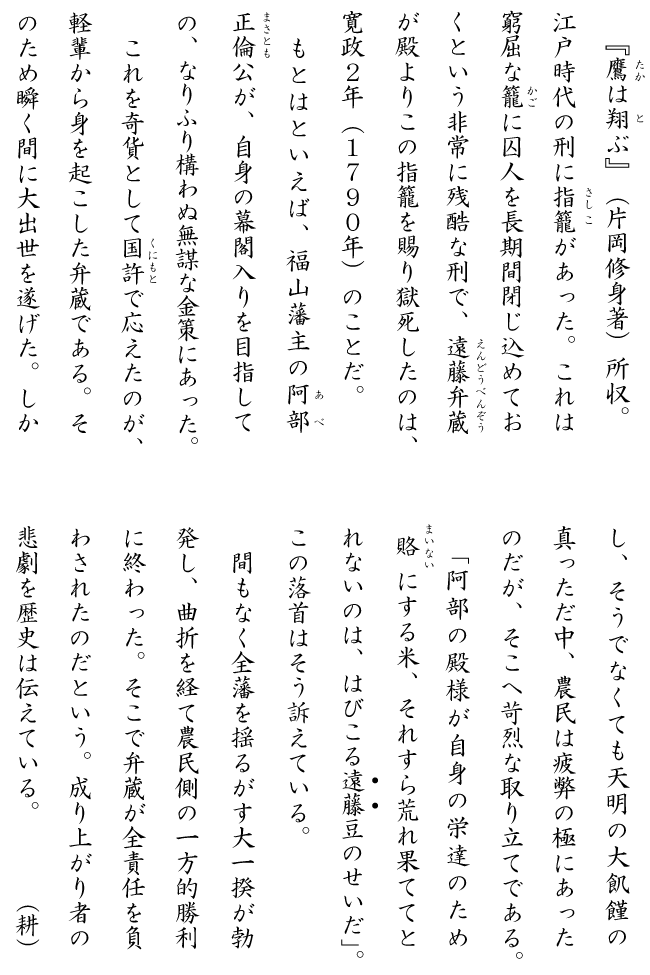 『鷹は翔ぶ』（片岡修身著）所収。
江戸時代の刑に指籠があった。これは
窮屈な籠に囚人を長期間閉じ込めてお
くという非常に残酷な刑で、遠藤弁蔵
が殿よりこの指籠を賜り獄死したのは、
寛政２年（１７９０年）のことだ。
もとはといえば、福山藩主の阿部
正倫公が、自身の幕閣入りを目指して
の、なりふり構わぬ無謀な金策にあった。
これを奇貨として国許で応えたのが、
軽輩から身を起こした弁蔵である。そ
のため瞬く間に大出世を遂げた。しか
し、そうでなくても天明の大飢饉の
真っただ中、農民は疲弊の極にあった
のだが、そこへ苛烈な取り立てである。
「阿部の殿様が自身の栄達のため
賂にする米、それすら荒れ果ててと
れないのは、はびこる遠藤豆のせいだ」。
この落首はそう訴えている。
間もなく全藩を揺るがす大一揆が勃
発し、曲折を経て農民側の一方的勝利
に終わった。そこで弁蔵が全責任を負
わされたのだという。成り上がり者の
悲劇を歴史は伝えている。（耕）